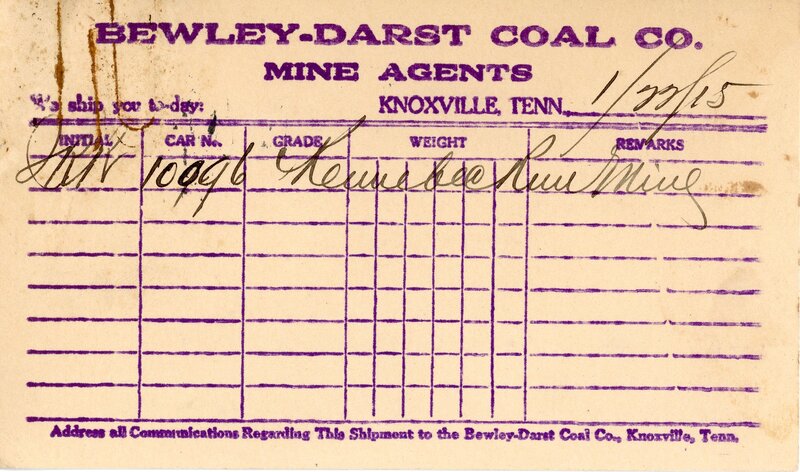 BEWLEY-DARST COAL CO.
MINE AGENTS
We ship you to-day: KNOXVILLE, TENN., 1/22/15
INITIAL CAR No. GRADE WEIGHT REMARKS
10096 Kennebec Run Mine
Address all Communications Regarding This Shipment to the Bewley-Darst Coal Co., Knoxville, Tenn.